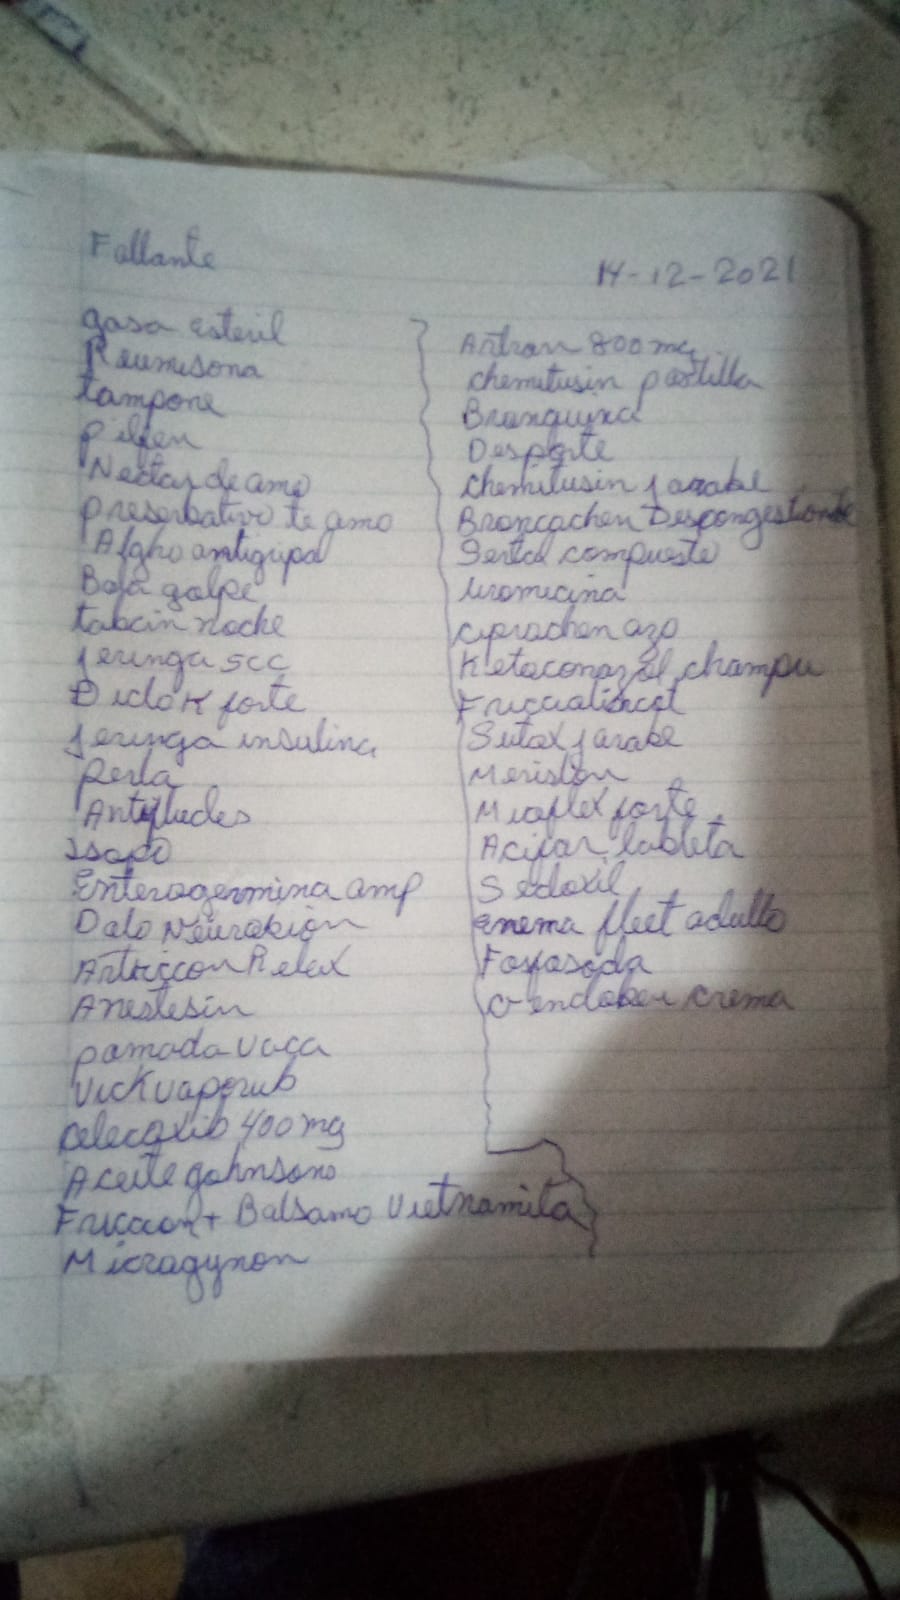 Fallante
14-12-2021
gasa esteril
Reumisona
tampone
pilfen
Nectar de amo
preserbativo te amo
Afgho antigripa
Baja golpe
tabcin noche
jeringa 5cc
Diclo K forte
jeringa insulina
perla
Antifludes
Isopo
Enterogermina amp
Dalo Neurobion
Artriccon Relex
Anestesin
pomada vaca
Vick vaporub
celecoxib 400 mg
Aceite gohnsons
Friccion + Balsamo Vietnamita
Microgynon
Artran 800 mg
chemitusin pastilla
Bronquyna
Desporte
chemitusin jarabe
Broncochen Descongestionate
Serta compueste
uromicina
ciprochen azo
Ketoconazol champu
Sutox jarabe
Merislon
Mioflex forte
Acifar tableta
Sedoxil
enema fleet adulto
Fosfosoda
crema